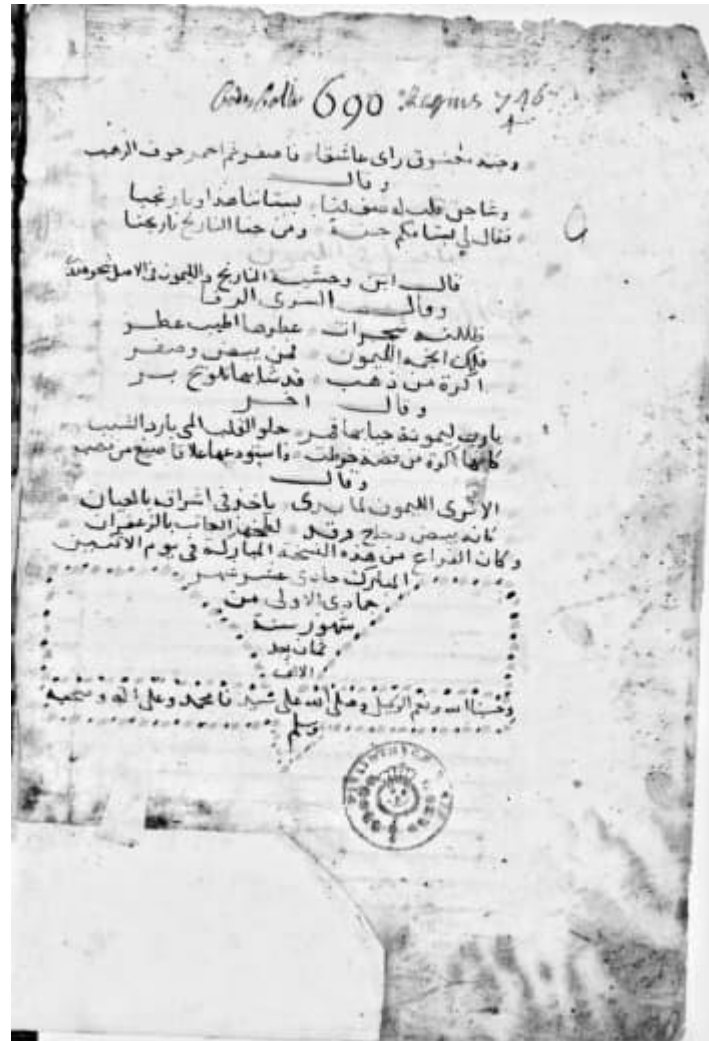 690 Regius 746
4
وجنة معشوق راى عاشقا فاصفر ثم احمر خوف الرقيب
وقال
وشادن قلت له صف لنا بستاننا هذا ونارنجنا
فقال لي بستانكم جنة ومن جنا النارنج نارا جنا
قال ابن وحشية النارنج والليمون في الاصل شجر هندي
وقال السري الرفا
ظللته شجرات عطرها اطيب عطر
فلك انجمه الليمون من بيض وصفر
اكرة من ذهب قد شابها تلويح
وقال اخر
يارب ليمونة حيا بها قمر حلو المقبل المى بارد الشنب
كانها اكرة من فضة خرطت فاستودعوها غلافا صيغ من ذهب
وقال
الا ترى الليمون لما بدى ياخذ في اشراقه بالعيان
كانه بيض دجاج وقد لطخها العابث بالزعفران
وكان الفراغ من هذه النسخة المباركة في يوم الاثنين
المبارك حادي عشر شهر
جمادى الاولى من
شهور سنة
ثمان بعد
الالف
وحسبنا الله ونعم الوكيل وصلى الله على سيدنا محمد وعلى اله وصحبه
وسلم